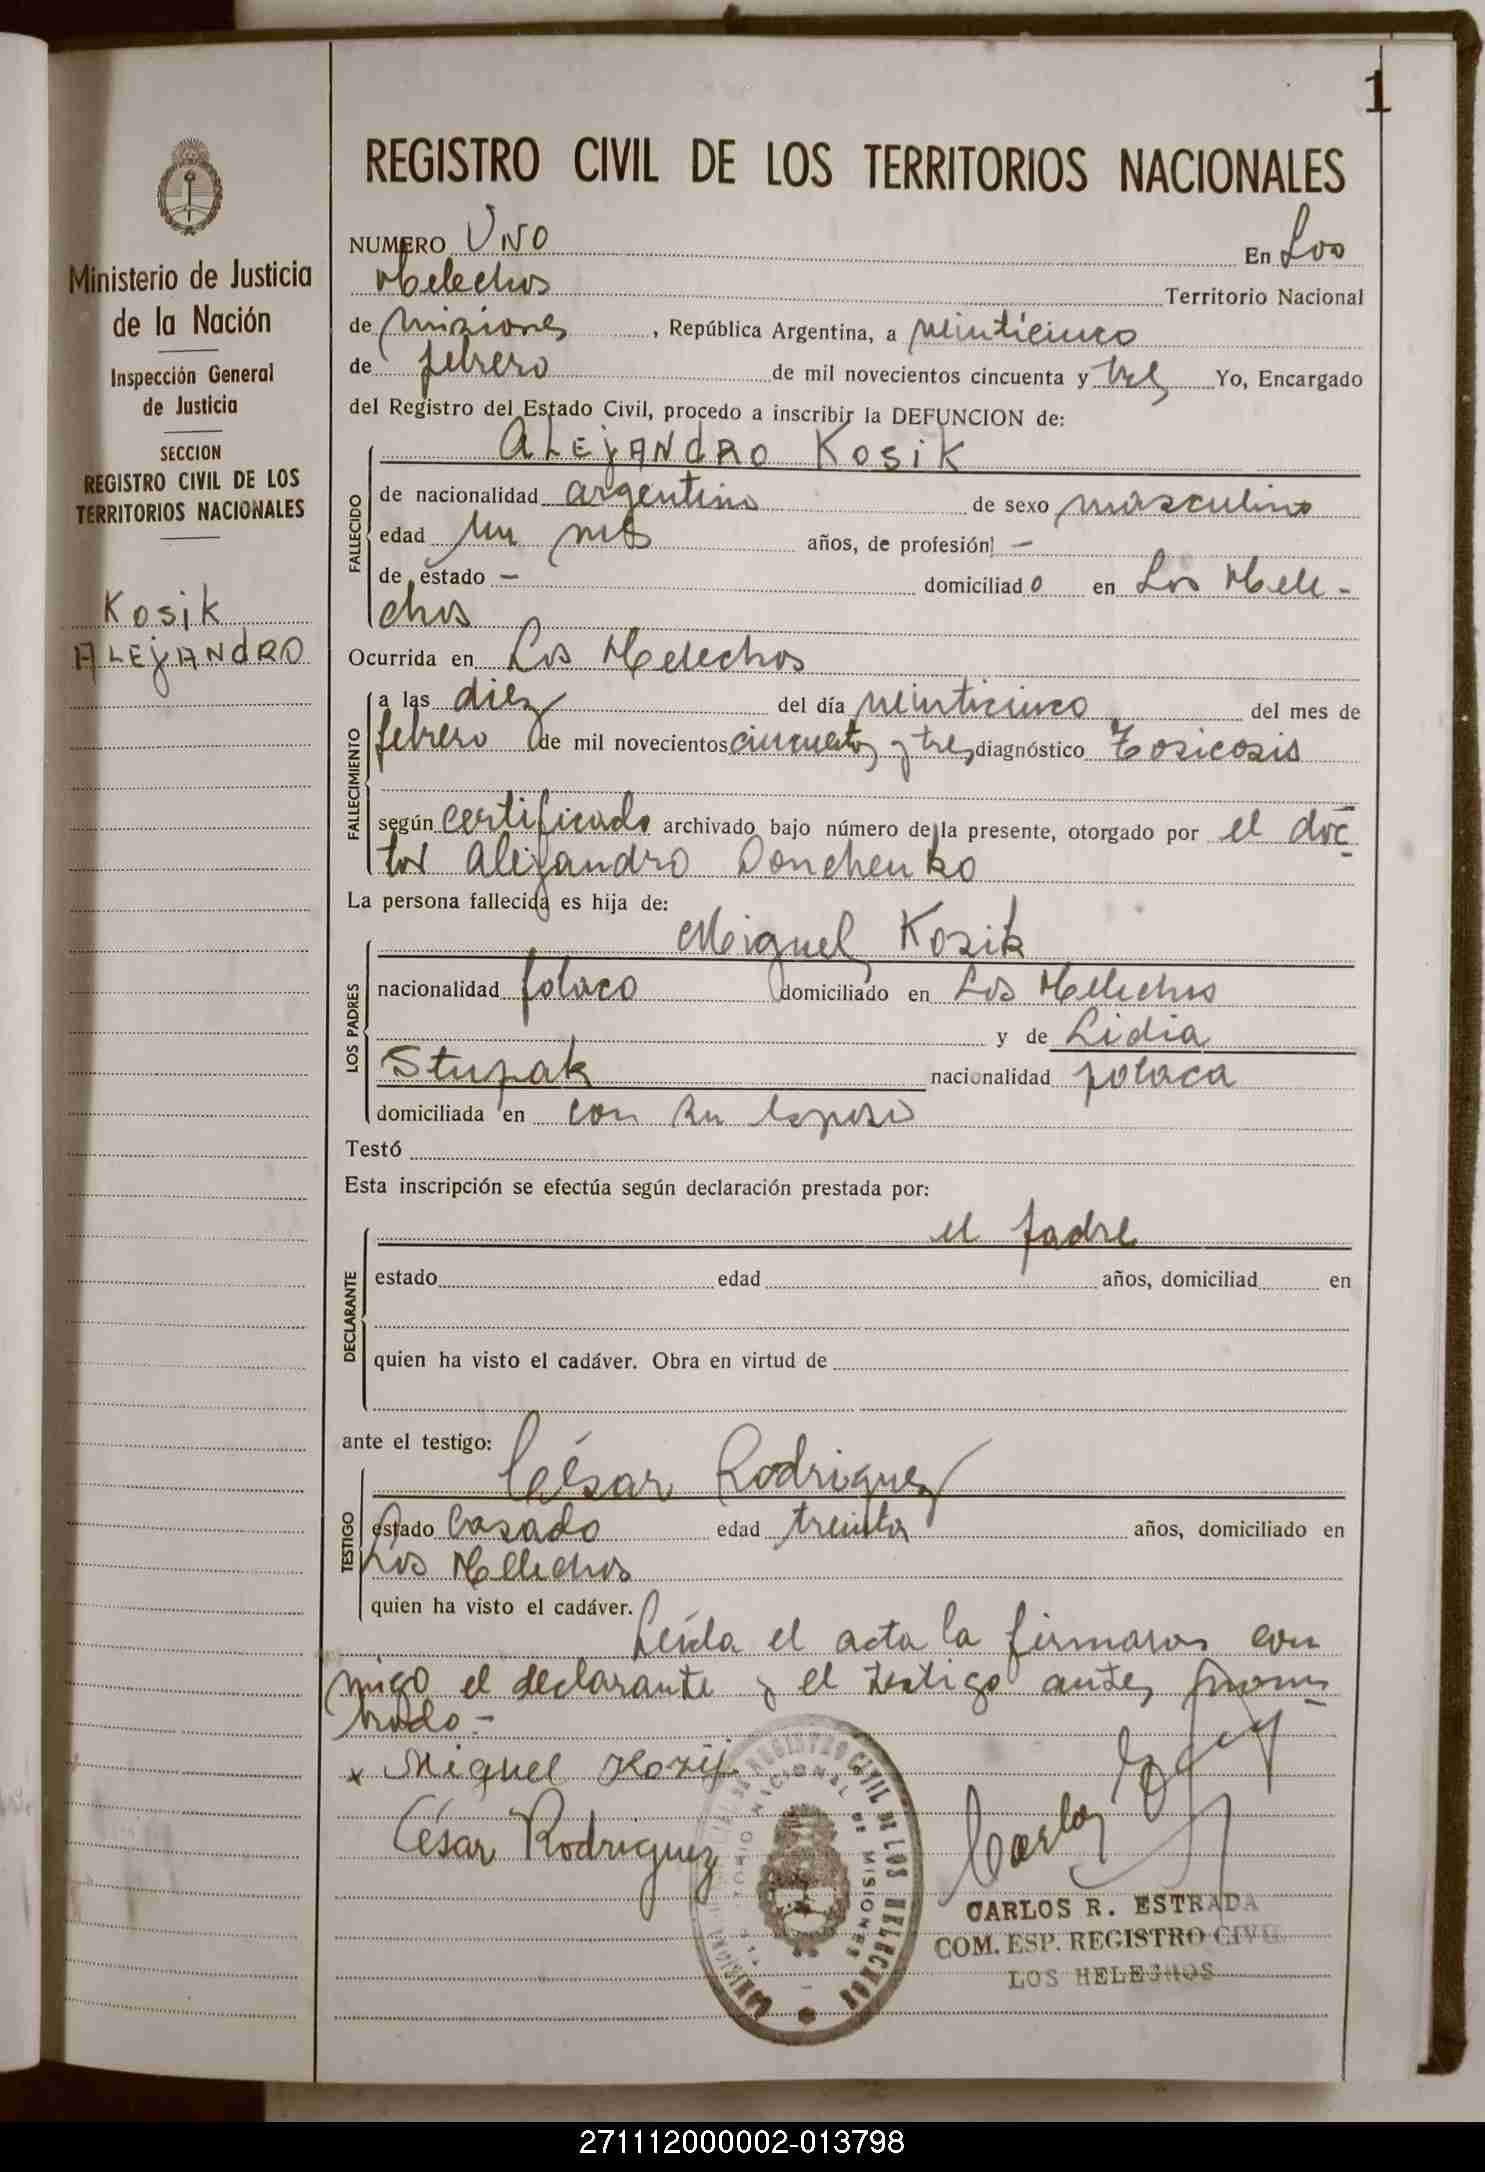 1
REGISTRO CIVIL DE LOS TERRITORIOS NACIONALES
Ministerio de Justicia
de la Nación
Inspección General
de Justicia
SECCION
REGISTRO CIVIL DE LOS
TERRITORIOS NACIONALES
Kosik
ALEjANdRO
NUMERO UNO En Los
Helechos Territorio Nacional
de Misiones, República Argentina, a veinticinco
de febrero de mil novecientos cincuenta y tres Yo, Encargado
del Registro del Estado Civil, procedo a inscribir la DEFUNCION de:
ALEjANdRO KosiK
FALLECIDO
de nacionalidad argentino de sexo masculino
edad un mes años, de profesión —
de estado — domiciliado en Los Hele-
chos
Ocurrida en Los Helechos
FALLECIMIENTO
a las diez del día veinticinco del mes de
febrero de mil novecientos cincuenta y tres diagnóstico Toxicosis
según certificado archivado bajo número de la presente, otorgado por el doc
tor Alejandro Donchenko
La persona fallecida es hija de:
LOS PADRES
Miguel Kosik
nacionalidad polaco domiciliado en Los Helechos
y de Lidia
Stupak nacionalidad polaca
domiciliada en con su esposo
Testó
Esta inscripción se efectúa según declaración prestada por:
DECLARANTE
el padre
estado edad años, domiciliad en
quien ha visto el cadáver. Obra en virtud de
ante el testigo:
TESTIGO
César Rodriguez
estado Casado edad treinta años, domiciliado en
Los Helechos
quien ha visto el cadáver. Leída el acta la firmaron con
migo el declarante y el testigo antes nom
brado.-
x Miguel Kozik
César Rodriguez
Carlos
CARLOS R. ESTRADA
COM. ESP. REGISTRO CIVIL
LOS HELECHOS
REGISTRO CIVIL DE LOS HELECHOS
NACIONAL DE MISIONES
271112000002-013798